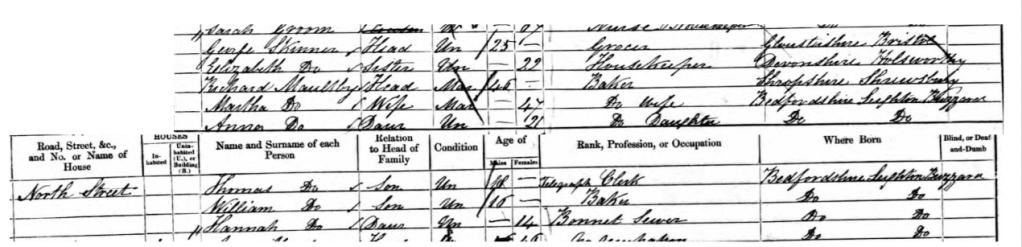 Sarah Groom Un 67 Nurse Do Do
George Skinner Head Un 25 — Grocer Gloustershire Bristol
Elizabeth Do Sister Un — 22 Housekeeper Devonshire Holsworthy
Richard Maultby Head Mar 46 — Baker Shropshire Shrewsbury
Martha Do Wife Mar — 47 Do Wife Bedfordshire Leighton Buzzard
Anna Do Daur Un — 21 Do Daughter Do Do
Road, Street, &c., and No. or Name of House
HOUSES
In-habited
Unin-habited (U.), or Building (B.)
Name and Surname of each Person
Relation to Head of Family
Condition
Age of
Males
Females
Rank, Profession, or Occupation
Where Born
Blind, or Deaf-and-Dumb
North Street Thomas Do Son Un 18 — Telegraph Clerk Bedfordshire Leighton Buzzard
William Do Son Un 16 — Baker Do Do
Hannah Do Daur Un — 14 Bonnet Sewer Do Do
Do Do